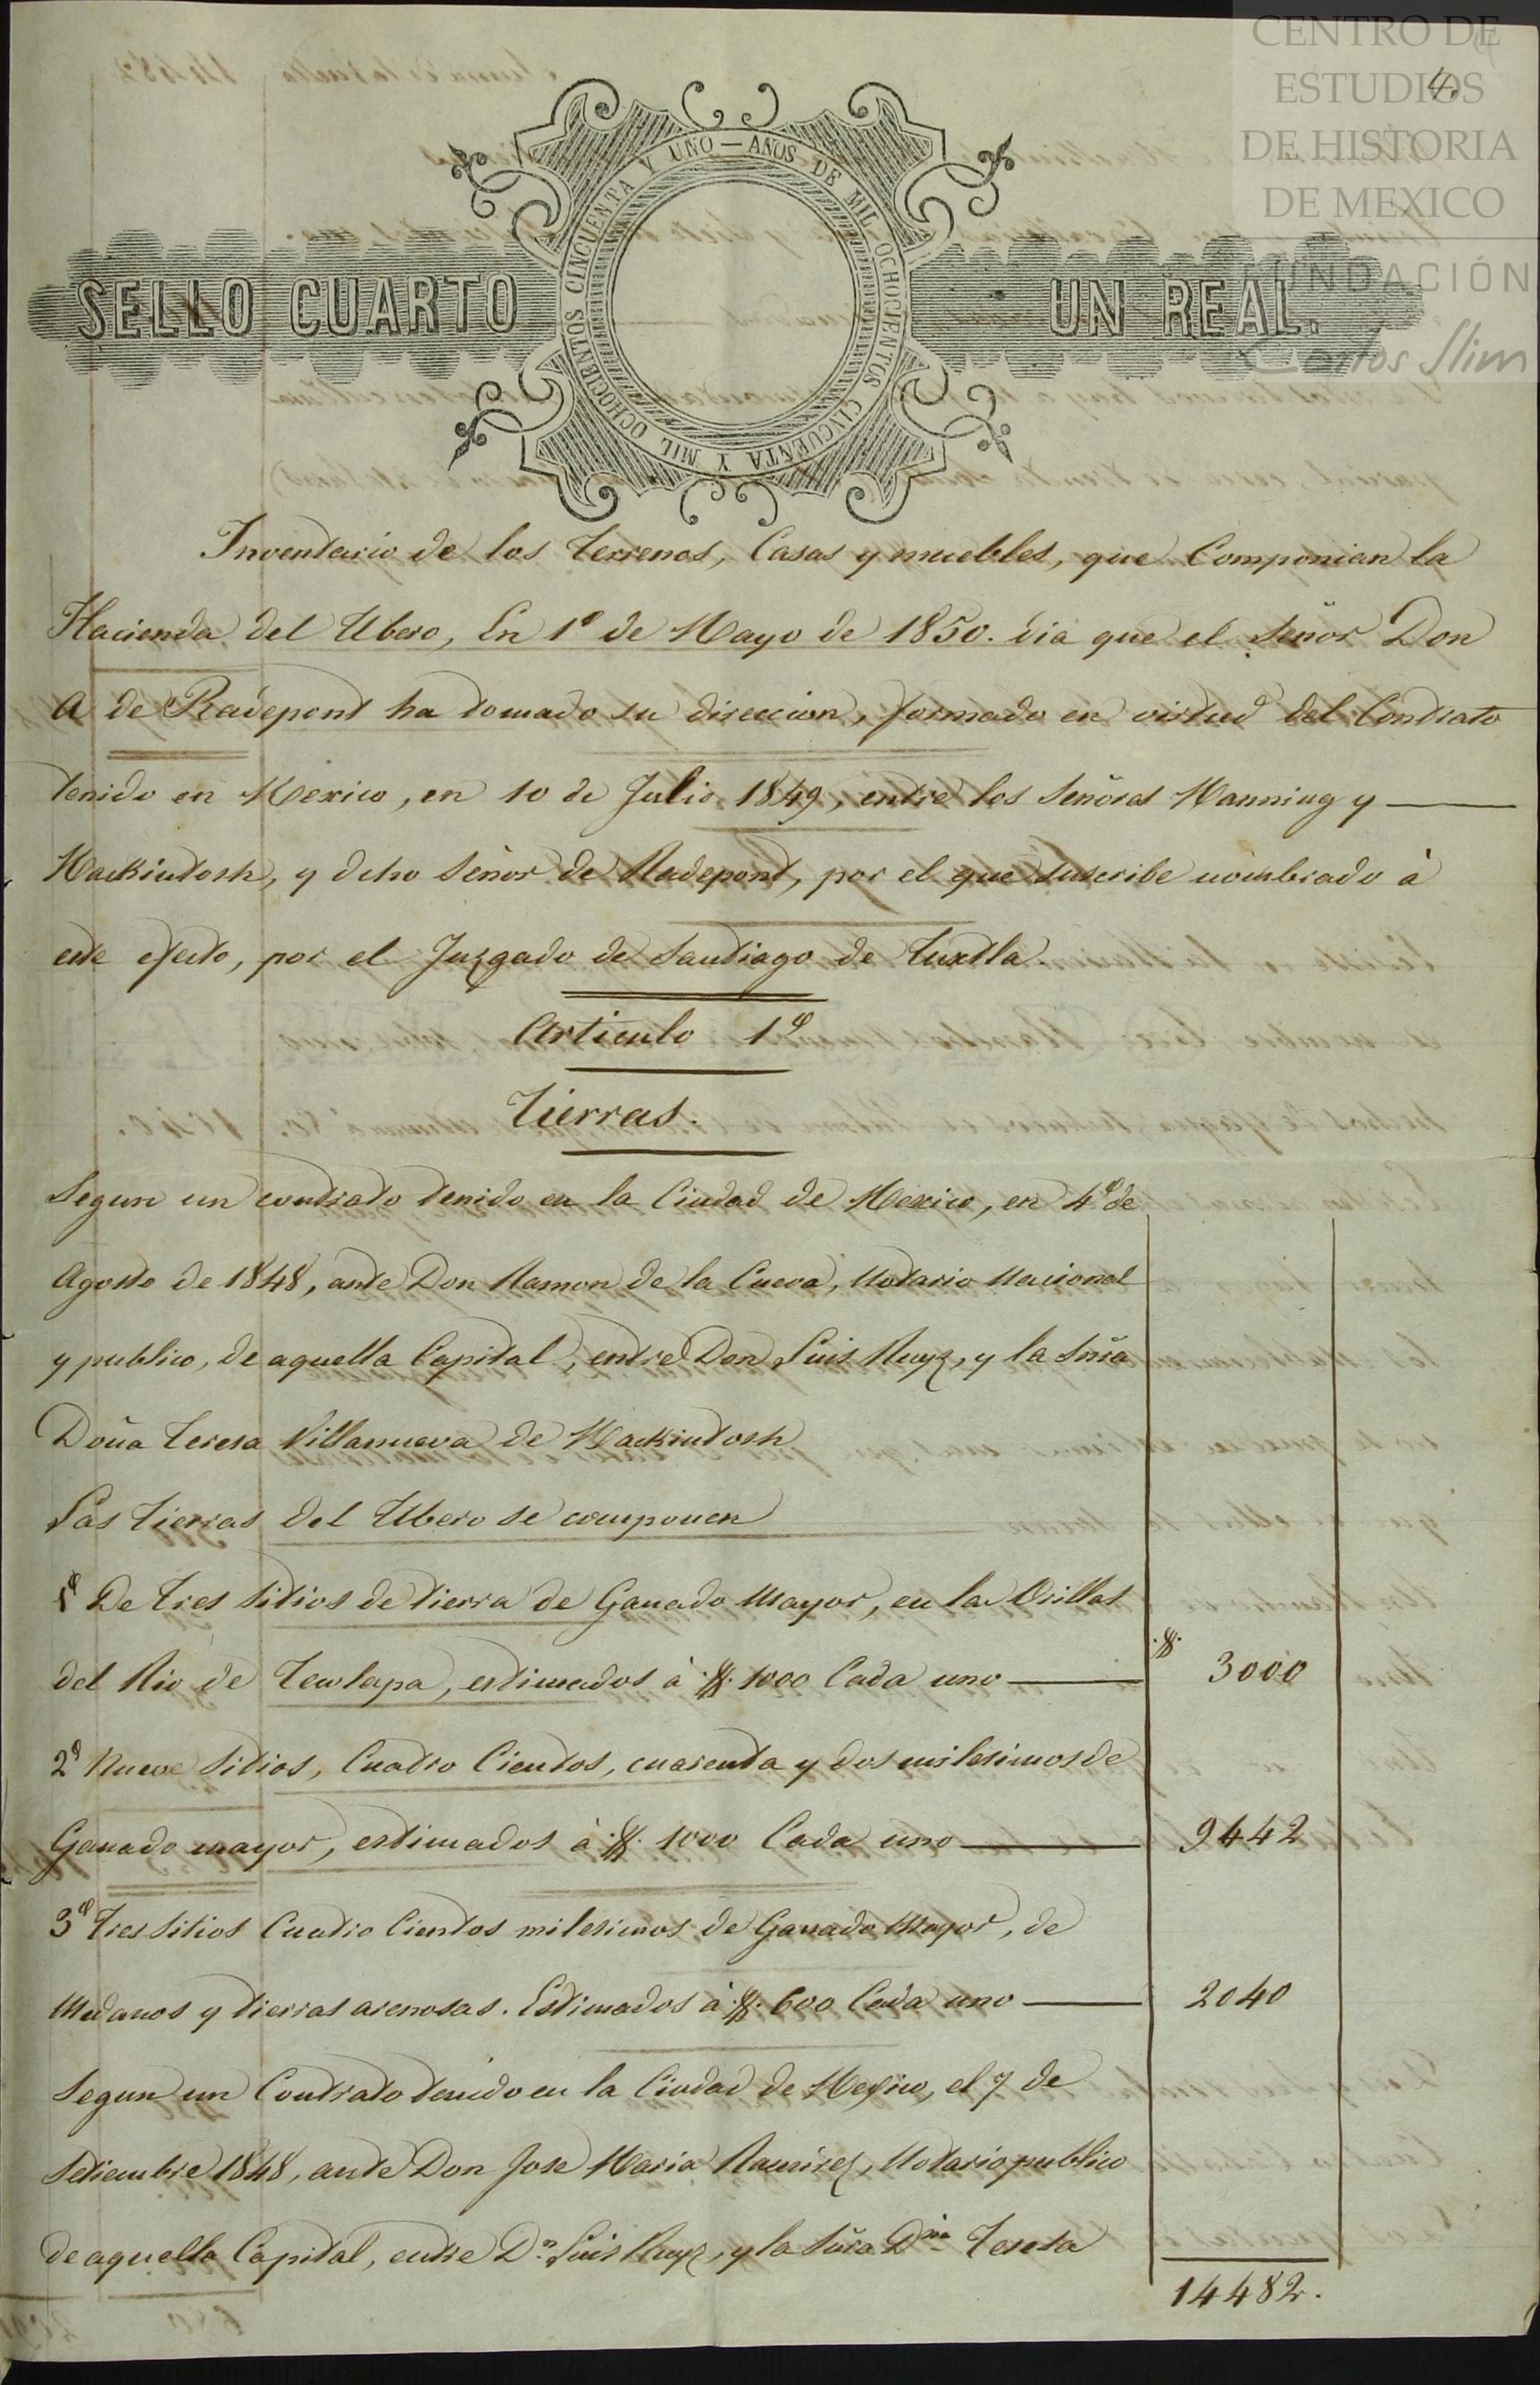 CENTRO DE
ESTUDIOS
DE HISTORIA
DE MEXICO
FUNDACIÓN
Carlos Slim
4.
SELLO CUARTO
UN REAL.
MIL OCHOCIENTOS CINCUENTA Y UNO — AÑOS DE MIL OCHOCIENTOS CINCUENTA Y
Inventario de los terrenos, Casas y muebles, que Componian la
Hacienda del Ubero, En 1º de Mayo de 1850. dia que el Señor Don
A de Radepont ha tomado su direccion, formado en virtud del Contrato
tenido en Mexico, en 10 de Julio 1849, entre los Señores Manning y
Mackintosh, y dcho Señor de Radepont, por el que suscribe nombrado à
este efecto, por el Juzgado de Santiago de Tuxtla.
Articulo 1º
Tierras.
Segun un contrato tenido en la Ciudad de Mexico, en 4º de
Agosto de 1848, ante Don Ramon de la Cueva, Notario Nacional
y publico, de aquella Capital, entre Don Luis Ruyz, y la Snra
Doña Teresa Villanueva de Mackintosh
Las Tierras del Ubero se componen
1º De Tres Sitios de tierra de Ganado Mayor, en la Orillas
del Rio de Tecolapa, estimados à $ 1000 Cada uno $ 3000
2º Nueve Sitios, Cuatro Cientos, cuarenta y dos milesimos de
Ganado mayor, estimados à $ 1000 Cada uno 9442
3º Tres Sitios Cuatro Cientos milesimos de Ganado Mayor, de
Medanos y tierras arenosas. Estimados à $ 600 Cada uno 2040
Segun un Contrato tenido en la Ciudad de Mexico, el 7 de
Setiembre 1848, ante Don Jose Maria Ramirez, Notario publico
de aquella Capital, entre Dn Luis Ruyz, y la Sñra Dña Teresa
14482.